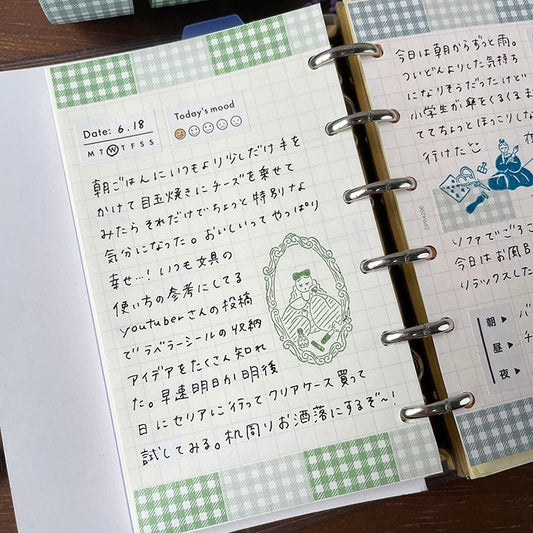 Date: 6.18
M T W T F S S
Today's mood
朝ごはんにいつもより少しだけ手を
かけて目玉焼きにチーズを乗せて
みたらそれだけでちょっと特別な
気分になった。おいしいってやっぱり
幸せ…! いつも文具の
使い方の参考にしてる
youtuberさんの投稿
でラベラーシールの収納
アイデアをたくさん知れ
た。早速明日か明後
日にセリアに行ってクリアケース買って
試してみる。机周りお洒落にするぞ〜!
今日は朝からずっと雨。
ついどんよりした気持ち
になりそうだったけど
小学生が傘をくるくるま
ててちょっとほっこりし
行けたとこ
ソファでごろご
今日はお風呂
リラックスした
朝▶
昼▶
夜▶